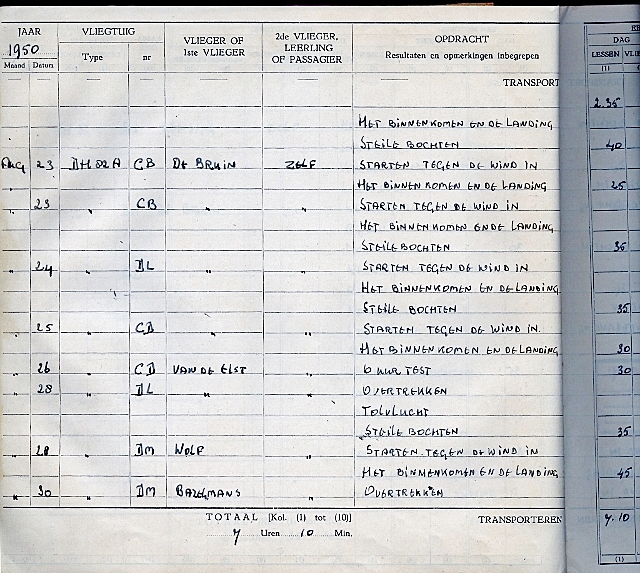 JAAR VLIEGTUIG VLIEGER OF 1STE VLIEGER 2de VLIEGER, LEERLING OF PASSAGIER OPDRACHT DAG
1950 Resultaten en opmerkingen inbegrepen LESSEN
Maand Datum Type nr (1)
TRANSPORT
2.35
HET BINNENKOMEN EN DE LANDING
STEILE BOCHTEN 40
AUG 23 DH 82 A CB DE BRUIN ZELF STARTEN TEGEN DE WIND IN
HET BINNENKOMEN EN DE LANDING 25
„ 23 „ CB „ „ STARTEN TEGEN DE WIND IN
HET BINNENKOMEN EN DE LANDING
STEILE BOCHTEN 35
„ 24 „ DL „ „ STARTEN TEGEN DE WIND IN
HET BINNENKOMEN EN DE LANDING
STEILE BOCHTEN 35
„ 25 „ CD „ „ STARTEN TEGEN DE WIND IN
HET BINNENKOMEN EN DE LANDING 30
„ 26 „ CD VAN DE ELST „ 6 UUR TEST 30
„ 28 „ DL „ „ OVERTREKKEN
TOLVLUCHT
STEILE BOCHTEN 35
„ 28 „ DM WOLF „ STARTEN TEGEN DE WIND IN
HET BINNENKOMEN EN DE LANDING 45
„ 30 „ DM „ OVERTREKKEN
TOTAAL [Kol. (1) tot (10)] TRANSPORTEREN 7.10
7 Uren 10 Min.
(1)